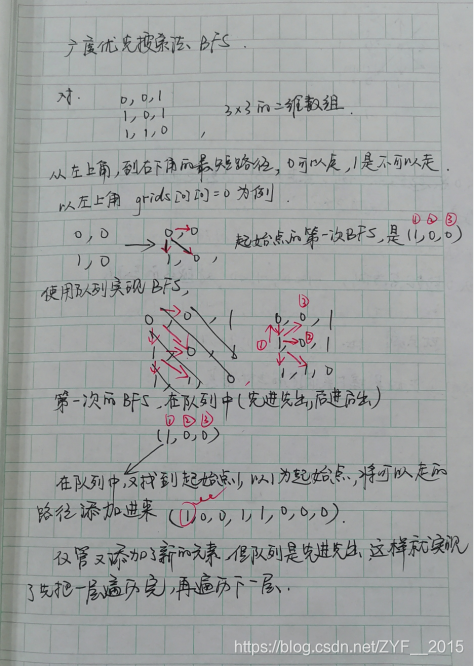 广度优先搜索法、BFS.
对.
0, 0, 1
1, 0, 1 3×3 的二维数组.
1, 1, 0 ,
从左上角,到右下角的最短路径, 0可以走, 1是不可以走.
以左上角 grids[0][0]=0 为例.
① ② ③
0, 0 → 0, 0 起始点的第一次BFS, 是 (1, 0, 0)
1, 0 1, 0 ,
使用队列实现 BFS,
③
0, 0, 1 0, 0, 1
1, 0, 1 ① 1, 0, ② 1
1, 1, 0 , 1, 1, 0
第一次的BFS, 在队列中 (先进先出,后进后出)
① ② ③
(1, 0, 0)
在队列中,又找到起始点1, 以1为起始点, 将可以走的
路径添加进来 (1, 0, 0, 1, 1, 0, 0, 0) .
仅管又添加了新的元素, 但队列是先进先出, 这样就实现
了先把一层遍历完, 再遍历下一层.
https://blog.csdn.net/ZYF__2015